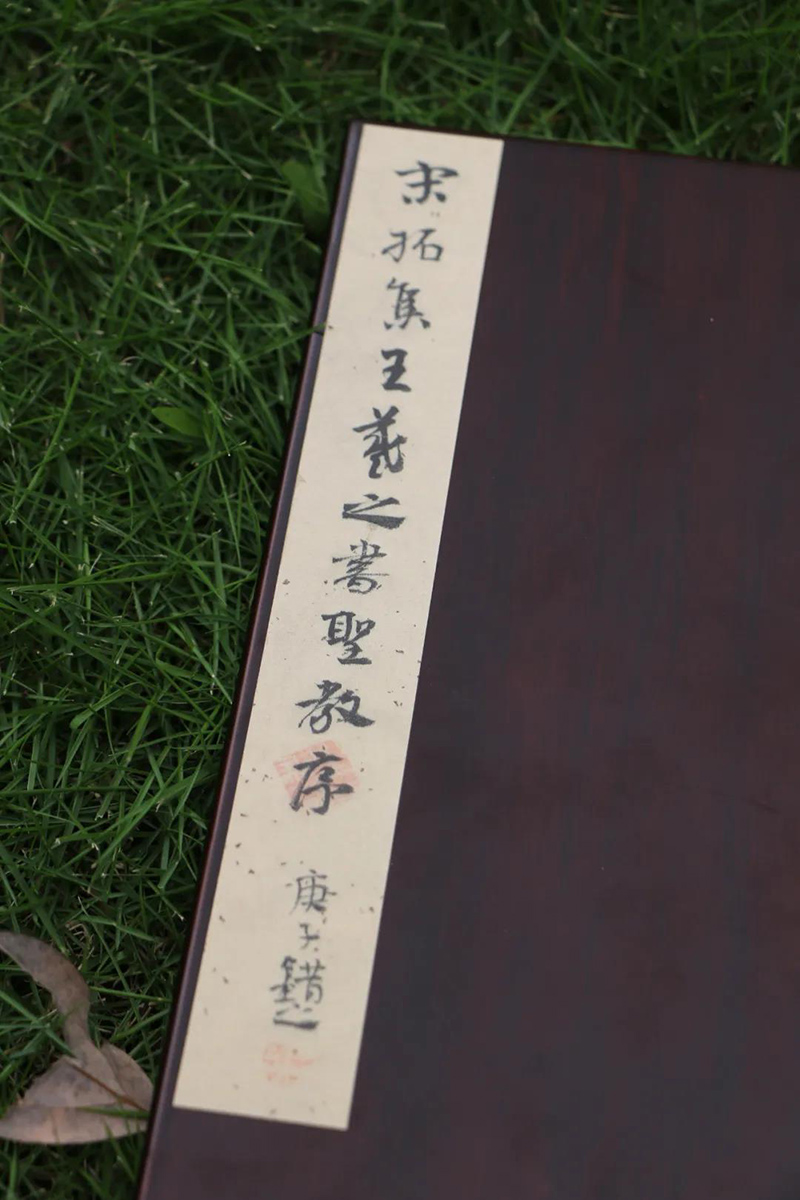 宋拓集王羲之書聖教序
庚子